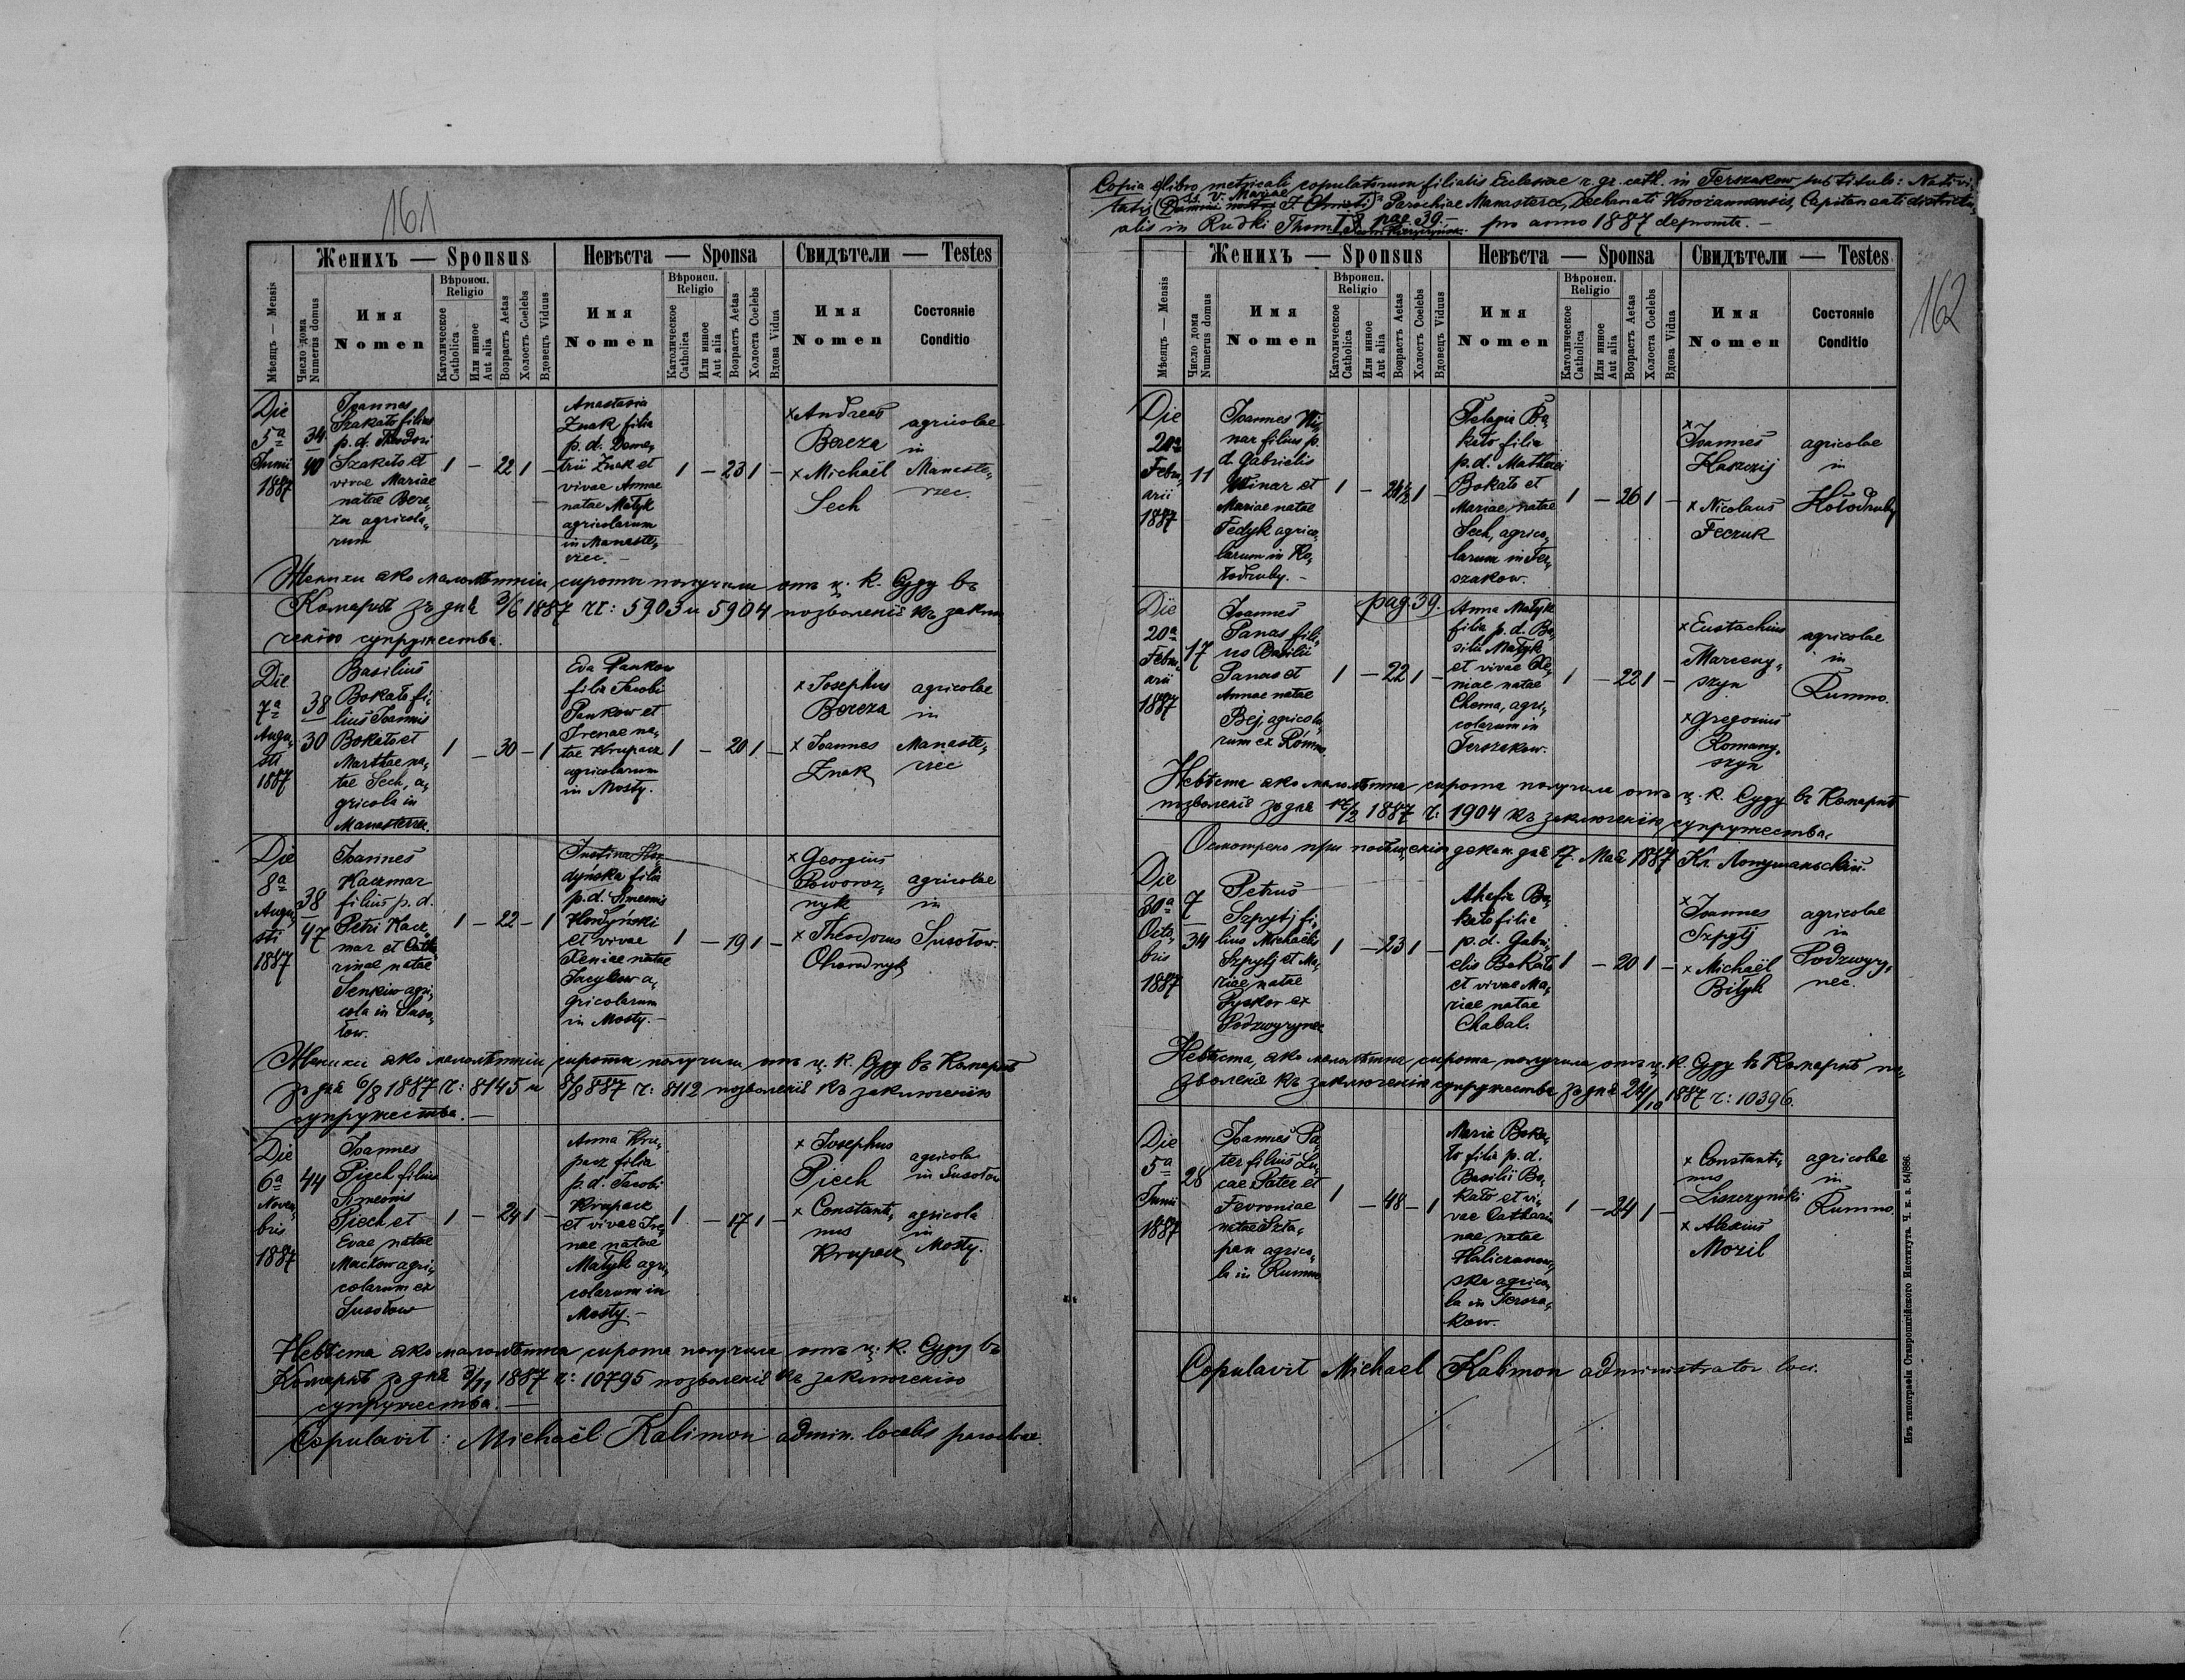 161
Женихъ — Sponsus
Невѣста — Sponsa
Свидѣтели — Testes
Мѣсяцъ — Mensis
Число дома
Numerus domus
Имя
Nomen
Вѣроисп.
Religio
Католическое
Catholica
Или иное
Aut alia
Возрастъ Aetas
Холостъ Coelebs
Вдовецъ Viduus
Имя
Nomen
Вѣроисп.
Religio
Католическое
Catholica
Или иное
Aut alia
Возрастъ Aetas
Холоста Coelebs
Вдова Vidua
Имя
Nomen
Состояніе
Conditio
Die
5ª
Junii
1887
34
40
Joannes
Szakało filius
p. d. Theodori
Szakało et
vivae Mariae
natae Bere„
za agricola„
rum
1 — 22 1 —
Anastasia
Znak filia
p. d. Deme„
trii Znak et
vivae Annae
natae Matyk
agricolarum
in Manaste„
rzec. —
1 — 23 1 —
× Andreas
Bereza
× Michaël
Sech
agricolae
in
Manaste„
rzec.
Женихи яко малолѣтніи сироты получили отъ ц. к. Суду въ
Комарнѣ зъ дня 3/6 1887 чч: 5903 и 5904 позволеніе къ заклю„
ченію супружества.
Die
7ª
Augu„
sti
1887
38
30
Basilius
Bokało fi„
lius Joannis
Bokało et
Marthae na„
tae Sech, a„
gricola in
Manasterzec.
1 — 30 — 1
Eva Pankow
filia Jacobi
Pankow et
Irenae na„
tae Krupacz
agricolarum
in Mosty.
1 — 20 1 —
× Josephus
Bereza
× Joannes
Znak
agricolae
in
Manaste„
rzec
Die
8ª
Augu„
sti
1887
38
47
Joannes
Kaczmar
filius p. d.
Petri Kacz„
mar et Catha„
rinae natae
Senkiw agri„
cola in Suso„
łow.
1 — 22 — 1
Justina Hor„
dyńska filia
p. d. Simeonis
Hordyński
et vivae
Xeniae natae
agricolarum
in Mosty. —
1 — 19 1 —
× Georgius
Poworoz„
nyk
× Theodorus
Ohorodnyk
agricolae
in
Susołow.
Женихи яко малолѣтніи сироты получили отъ ц. к. Суду въ Комарнѣ
зъ дня 6/8 1887 ч: 8145 и 5/8 887 ч: 8112 позволеніе къ заключенію
супружества. —
Die
6ª
Novem„
bris
1887
44
Joannes
Piech filius
Simeonis
Piech et
Evae natae
Maćkow agri„
colarum ex
Susołow
1 — 24 1 —
Anna Kru„
pacz filia
p. d. Jacobi
Krupacz
et vivae Ire„
nae natae
Matyk agri„
colarum in
Mosty. —
1 — 17 1 —
× Josephus
Piech
× Constanti„
nus
Krupacz
agricola
in Susołow
agricola
in
Mosty.
Невѣста яко малолѣтна сирота получила отъ ц. к. Суду въ
Комарнѣ зъ дня 3/11 1887 ч: 10795 позволеніе къ заключенію
супружества. —
Copulavit: Michaël Kalimon admin. localis parochiae.
Copia e libro metricali copulatorum filialis Ecclesiae r. gr. cath. in Terszakow sub titulo: Nativi„
tatis (Domini nostri J. Christi) B. V. Mariae Parochiae Manasterzec, Decanati Horożannensis, Capitaneati districtu„
alis in Rudki Thom I pag 39. — pro anno 1887 depromte. —
162
Женихъ — Sponsus
Невѣста — Sponsa
Свидѣтели — Testes
Мѣсяцъ — Mensis
Число дома
Numerus domus
Имя
Nomen
Вѣроисп.
Religio
Католическое
Catholica
Или иное
Aut alia
Возрастъ Aetas
Холостъ Coelebs
Вдовецъ Viduus
Имя
Nomen
Вѣроисп.
Religio
Католическое
Catholica
Или иное
Aut alia
Возрастъ Aetas
Холоста Coelebs
Вдова Vidua
Имя
Nomen
Состояніе
Conditio
Die
20ª
Febru„
arii
1887
11
Joannes Wi„
nar filius p.
d. Gabrielis
Winar et
Mariae natae
Fedyk agrico„
larum in Ko„
łodruby. —
1 — 24½ 1 —
Pelagia Bo„
kało filia
p. d. Mathaei
Bokało et
Mariae natae
Sech, agrico„
larum in Ter„
szakow.
1 — 26 1 —
× Joannes
× Nicolaus
Feczuk
agricolae
in
Kołodruby
pag. 39.
Die
20ª
Febru„
arii
1887
17
Joannes
Panas fili„
us Basilii
Panas et
Annae natae
Bej, agricola„
rum ex Rumno
1 — 22 1 —
Anna Matyk
filia p. d. Ba„
silii Matyk
et vivae Xe„
niae natae
Choma, agri„
colarum in
Terszakow.
1 — 22 1 —
× Eustachius
Marceny„
szyn
× Gregorius
Romany„
szyn
agricolae
in
Rumno.
Невѣста яко малолѣтна сирота получила отъ ц. к. Суду въ Комарнѣ
позволеніе зъ дня 17/2 1887 ч: 1904 къ заключенію супружества.
Осмотрено при посѣщенію декан. дня 17. Мая 1887 Кл. Лопушаньскій.
Die
30ª
Octo„
bris
1887
7
34
Petrus
Szpytj fi„
lius Michaëlis
Szpytj et Ma„
riae natae
Pyskor ex
Podzwyrynec
1 — 23 1 —
Ahafia Bo„
kało filia
p. d. Gabri„
elis Bokało
et vivae Ma„
riae natae
Chabal.
1 — 20 1 —
× Joannes
Szpytj
× Michaël
Bilyk
agricolae
in
Podzwyry„
nec.
Невѣста, яко малолѣтна сирота получила отъ ц. к. Суду въ Комарнѣ по„
зволеніе къ заключенію супружества зъ дня 24/10 1887 ч: 10396.
Die
5ª
Junii
1887
28
Joannes Pa„
ter filius Lu„
cae Pater et
Fevroniae
natae Szła„
pak agrico„
la in Rumno
1 — 48 — 1
Maria Boka„
ło filia p. d.
Basilii Bo„
kało et vi„
vae Cathari„
nae natae
Haliczanow„
ska agrico„
la in Tersza„
kow.
1 — 24 1 —
× Constanti„
nus
Liszczyński
× Alexius
Mozil
agricolae
in
Rumno.
Copulavit Michael Kalimon administrator loci.
Изъ типографіи Ставропигійского Института. Ч. к. з. 54/886.